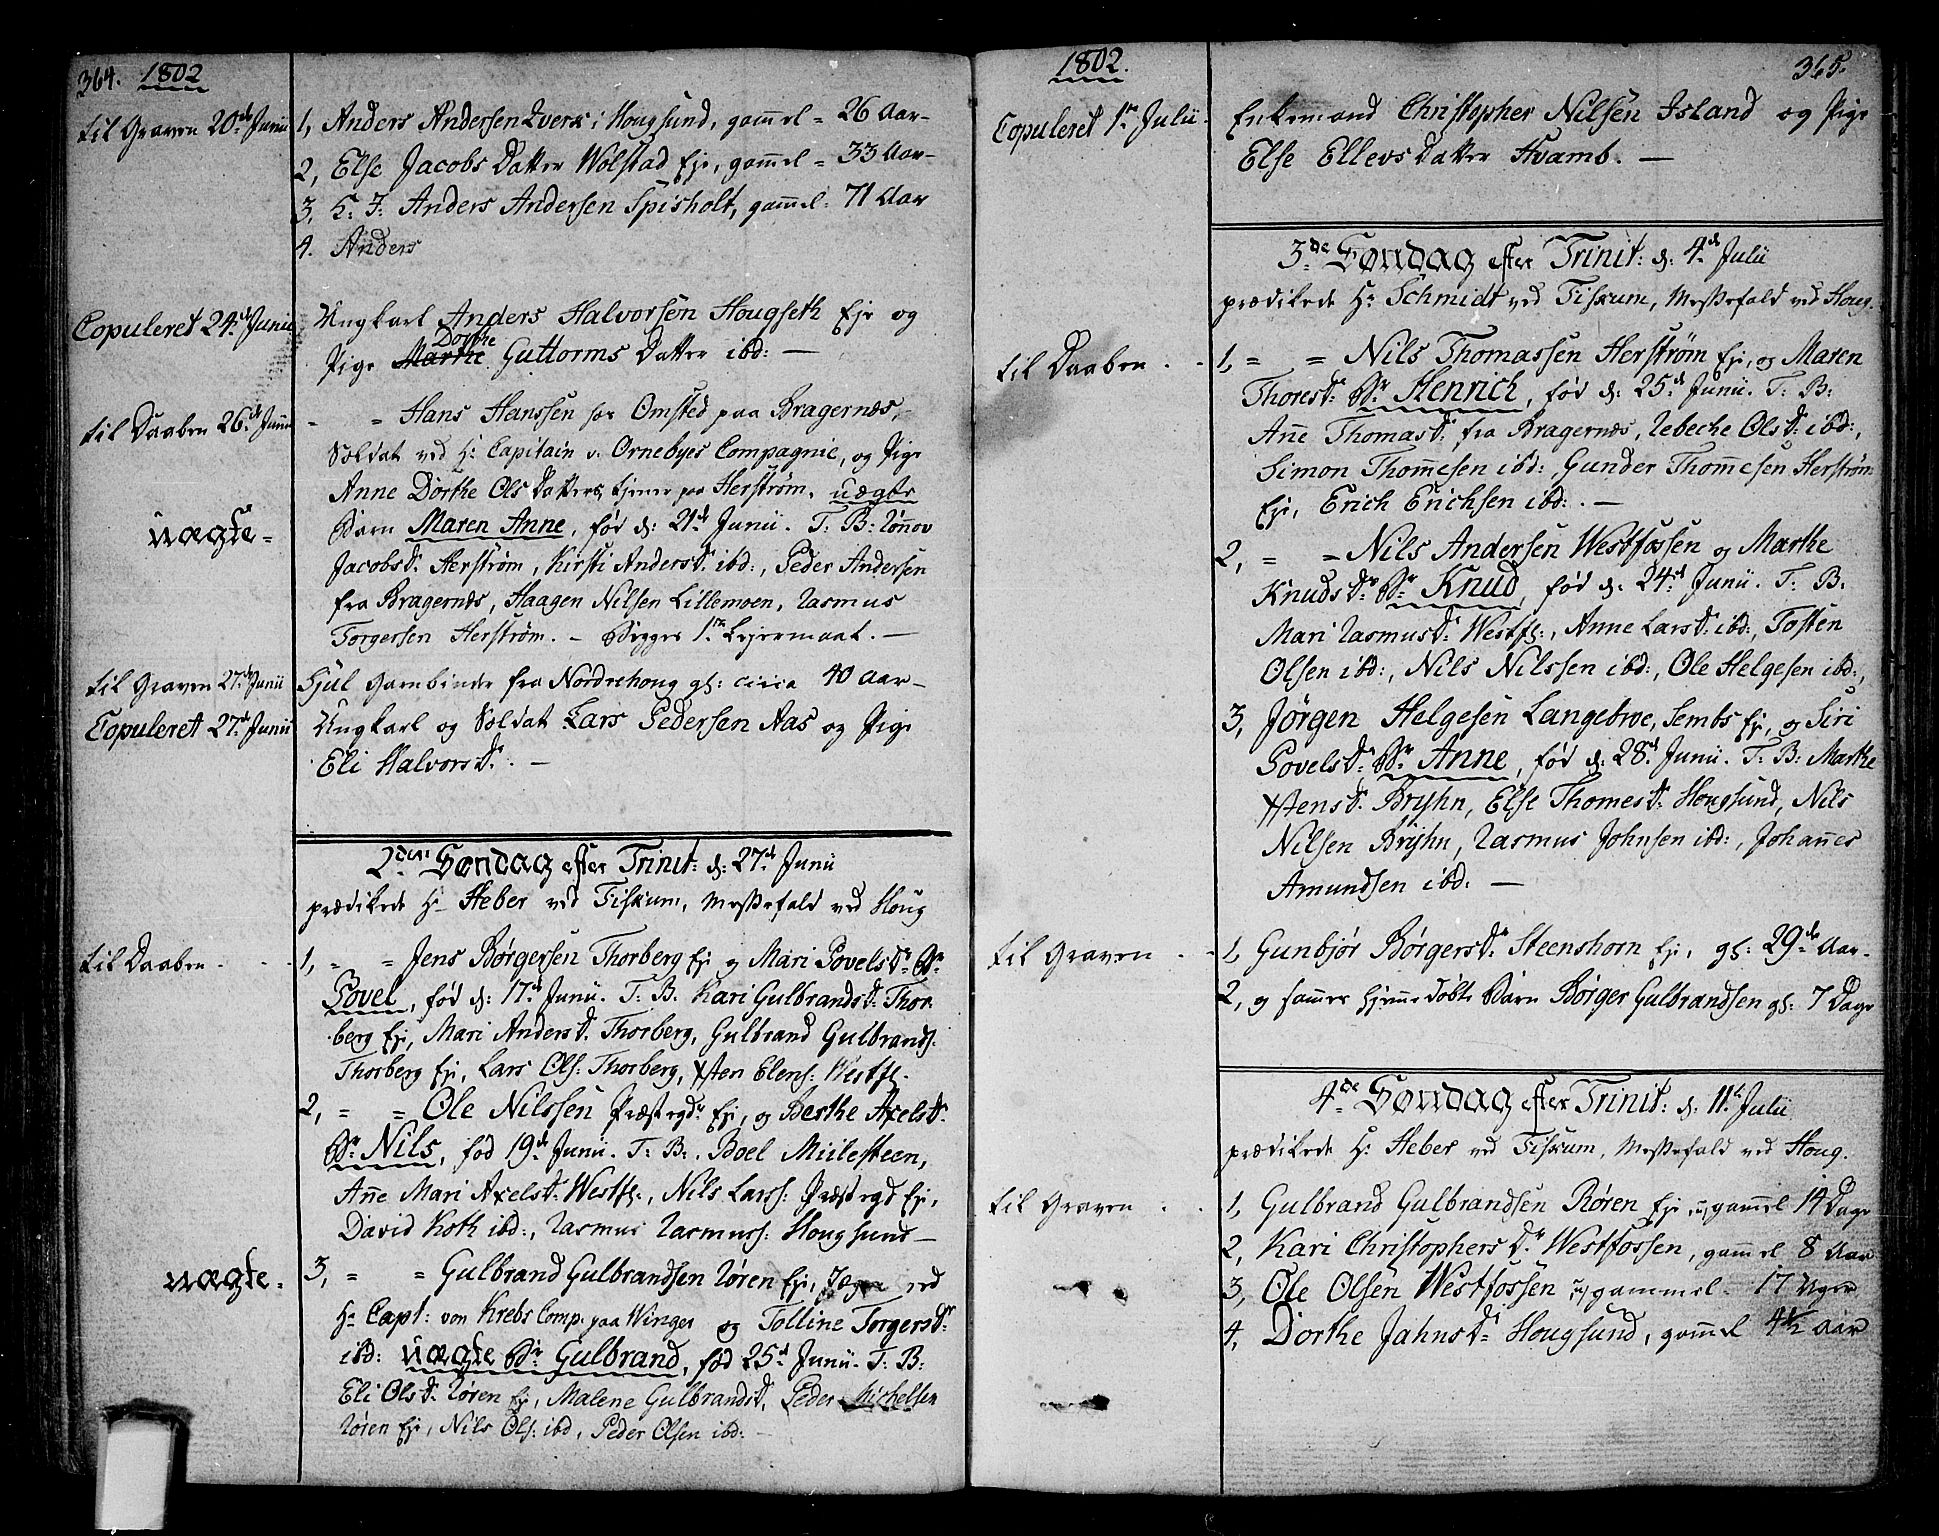 364. 1802
til Graven 20de Junii
1, Anders Andersen Qvern i Hougsund, gam̄el = 26 Aar-
2, Else Jacobs Datter Wolstad Eje, gam̄el = 33 Aar-
3, Anders Andersen Spisholt, gam̄el: 71 Aar
4. Anders
Copuleret 24de Junii
Ungkarl Anders Halvorsen Hougseth Eje og
Dorthe
Pige Marthe Guttorms Datter ibd: —
til Daaben 26de Junii
" Hans Hanssen Omsted paa Bragernæs,
Soldat ved Hr Capitain v. Ornebyes Compagnie, og Pige
Anne Dorthe Ols Datters, tjener paa Herstrøm, uægte
uægte-
Barn Maren Anne, fød d: 21de Junii. T: B: Rønov
Jacobsdr Herstrøm, Kirsti Andersdr ibd:, Peder Andersen
fra Bragernæs, Haagen Nilsen Lillemoen, Rasmus
Torgersen Herstrøm. - Begges 1ste Lejermaal. —
til Graven 27de Junii
Sjul Garnbinder fra Nordrehoug gl: circa 40 Aar-
Copuleret 27de Junii
Ungkarl og Soldat Lars Pedersen Aas og Pige
Eli Halvorsdr. —
2den Søndag efter Trinit: d: 27de Junii
prædikede Hr Heber ved Fiskum, Messefald ved Houg
til Daaben . . .
1, " = Jens Børgersen Thorberg Eje og Mari Povelsdr Br
Povel, fød d: 17de Junii. T: B. Kari Gulbrandsdr Thor-
berg Eje, Mari Andersdr Thorberg, Gulbrand Gulbrands:
Thorberg Eje, Lars Ols: Thorberg, Østen Elens: Westf:
2, = = Ole Nilssen Præstegd: Eje, og Berthe Axelsdr
Br Nils, fød 19de Junii. T: B: . Boel Miilesteen,
Añe Mari Axelsdr Westf:, Nils Larss: Præstegd Eje,
David Koth ibd:, Rasmus Rasmuss: Hougsund —
uægte-
3, = = Gulbrand Gulbrandsen Røren Eje, Jæger ved
Hr Capt: von Krebs Comp: paa Winger og Tolline Torgersdr
ibd: uægte Br Gulbrand, fød 25de Junii. T: B:
Eli Olsdr Røren Eje, Malene Gulbrandsdr, Peder Michelsen
Røren Eje, Nils Ols: ibd, Peder Olsen ibd: —
1802. 365.
Copuleret 1ste Julii.
Enkemand Christopher Nilsen Island og Pige
Else Ellevs Datter Hvamb. —
3de Søndag efter Trinit: d: 4de Julii
prædikede Hr Schmidt ved Fiskum, Messefald ved Houg.
til Daaben . .
1, = = Nils Thomassen Herstrøm Eje, og Maren
Thoresdr Br Henrich, fød d: 25de Junii. T: B:
Añe Thomasdr fra Bragernæs, Rebeche Olsdr ibd:,
Simon Thom̄esen ibd:, Gunder Thom̄esen Herstrøm
Eje, Erich Erichsen ibd: . —
2, = = Nils Andersen Westfossen og Marthe
Knudsdr Br Knud, fød d: 24de Junii. T: B:
Mari Rasmusdr Westf:, Anne Larsdr ibd:, Tosten
Olsen ibd:, Nils Nilssen ibd:, Ole Helgesen ibd:,
3, Jørgen Helgesen Langebroe, Sembs Eje, og Siri
Povelsdr Br Anne, fød d: 28de Junii. T: B: Marthe
Østensdr Bryhn, Else Thomesdr Hougsund, Nils
Nilsen Bryhn, Rasmus Johnsen ibd:, Johañes
Amundsen ibd: —
til Graven . .
1, Gunbjør Børgersdr Steenshorn Eje, gl: 29de Aar-
2, og sammes hjem̄edøbte Barn Børger Gulbrandsen gl: 7 Dage
4de Søndag efter Trinit: d: 11te Julii
prædikede Hr Heber ved Fiskum, Messefald ved Houg.
til Graven . .
1, Gulbrand Gulbrandsen Røren Eje, gam̄el 14 Dage
2, Kari Christophersdr Westfossen, gam̄el 8 Aar
3, Ole Olsen Westfossen gammel 17 Uger
4, Dorthe Jahnsdr Hougsund, gam̄el 4½ Aar